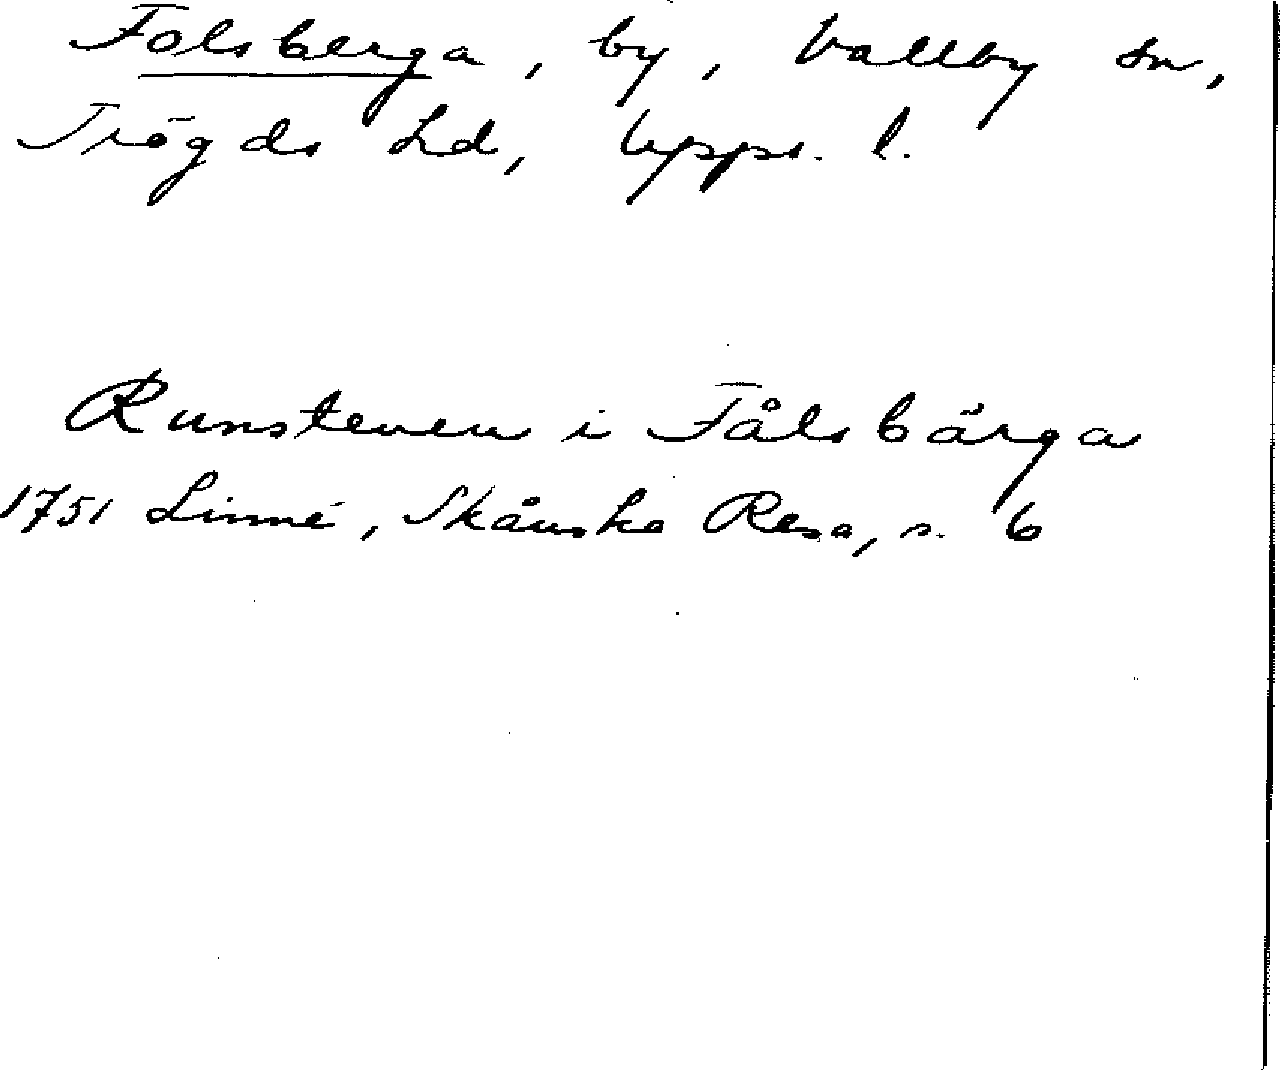 Folsberga, by, Vallby sn,
Trögds hd, Upps. l.
Runstenen i Fålsbärga
1751 Linné, Skånska Resa, s. 6